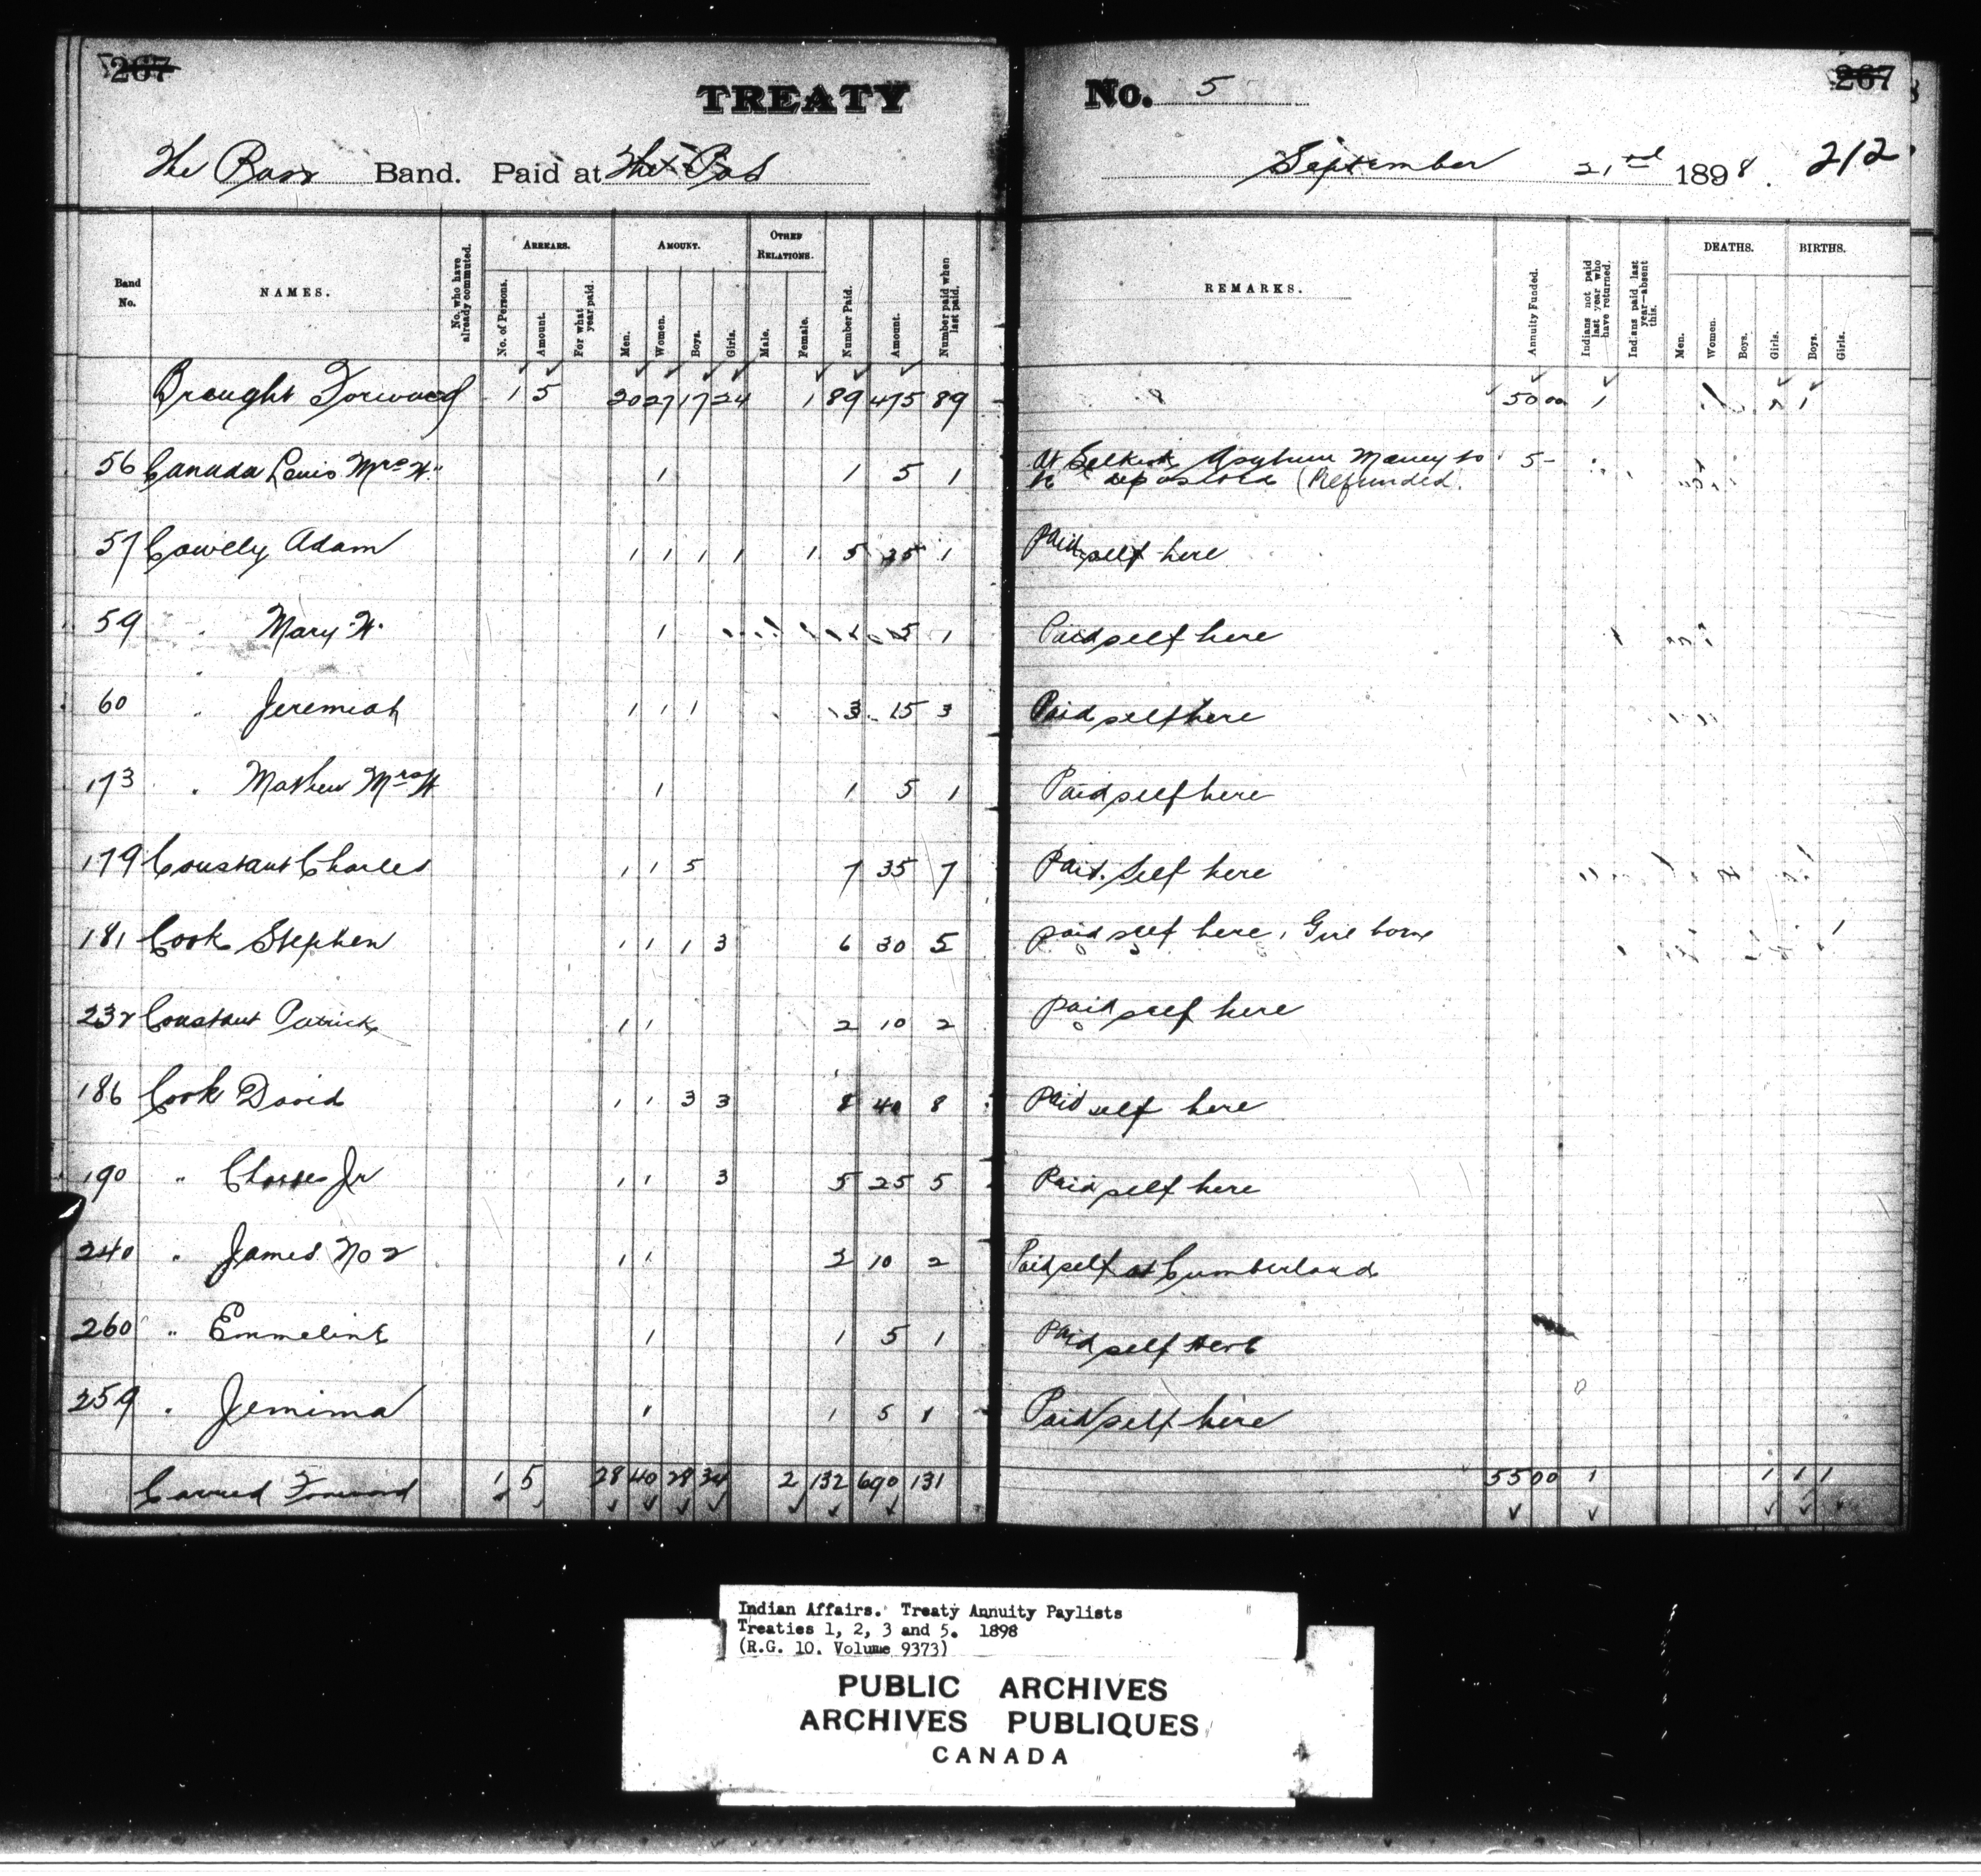 267 267
TREATY No. 5
The Pass Band. Paid at The Pas September 21nd 1898. 212
Band No. NAMES. No. who have already commuted. ARREARS. No. of Persons. Amount. For what year paid. AMOUNT. Men. Women. Boys. Girls. OTHER RELATIONS. Male. Female. Number Paid. Amount. Number paid when last paid. REMARKS. Annuity Funded. Indians not paid last year who have returned. Indians paid last year—absent this. DEATHS. Men. Women. Boys. Girls. BIRTHS. Boys. Girls.
Brought Forward 1 5 20 27 17 24 1 89 475 89 50 00 1 1
56 Canada Louis Mrs W. 1 1 5 1 At Selkirk Asylum Money to 5-
be deposited (Refunded.
57 Cowely Adam 1 1 1 1 1 5 35 1 Paid self here
59 " Mary W. 1 1 5 1 Paid self here
60 " Jeremiah 1 1 1 3 15 3 Paid self here
173 " Mathew Mrs W 1 1 5 1 Paid self here
179 Constant Charles 1 1 5 7 35 7 Paid. Self here
181 Cook Stephen 1 1 1 3 6 30 5 paid self here, Girl born 1
232 Constant Patrick 1 1 2 10 2 paid self here
186 Cook David 1 1 3 3 8 40 8 Paid self here
190 " Charles Jr 1 1 3 5 25 5 Paid self here
240 " James No 2 1 1 2 10 2 Paid self at Cumberland
260 " Emmeline 1 1 5 1 Paid self Here
259 " Jemima 1 1 5 1 Paid self here
Carried Forward 1 5 28 40 28 34 2 132 690 131 55 00 1 1 1 1
Indian Affairs. Treaty Annuity Paylists
Treaties 1, 2, 3 and 5. 1898
(R.G. 10. Volume 9373)
PUBLIC ARCHIVES
ARCHIVES PUBLIQUES
CANADA